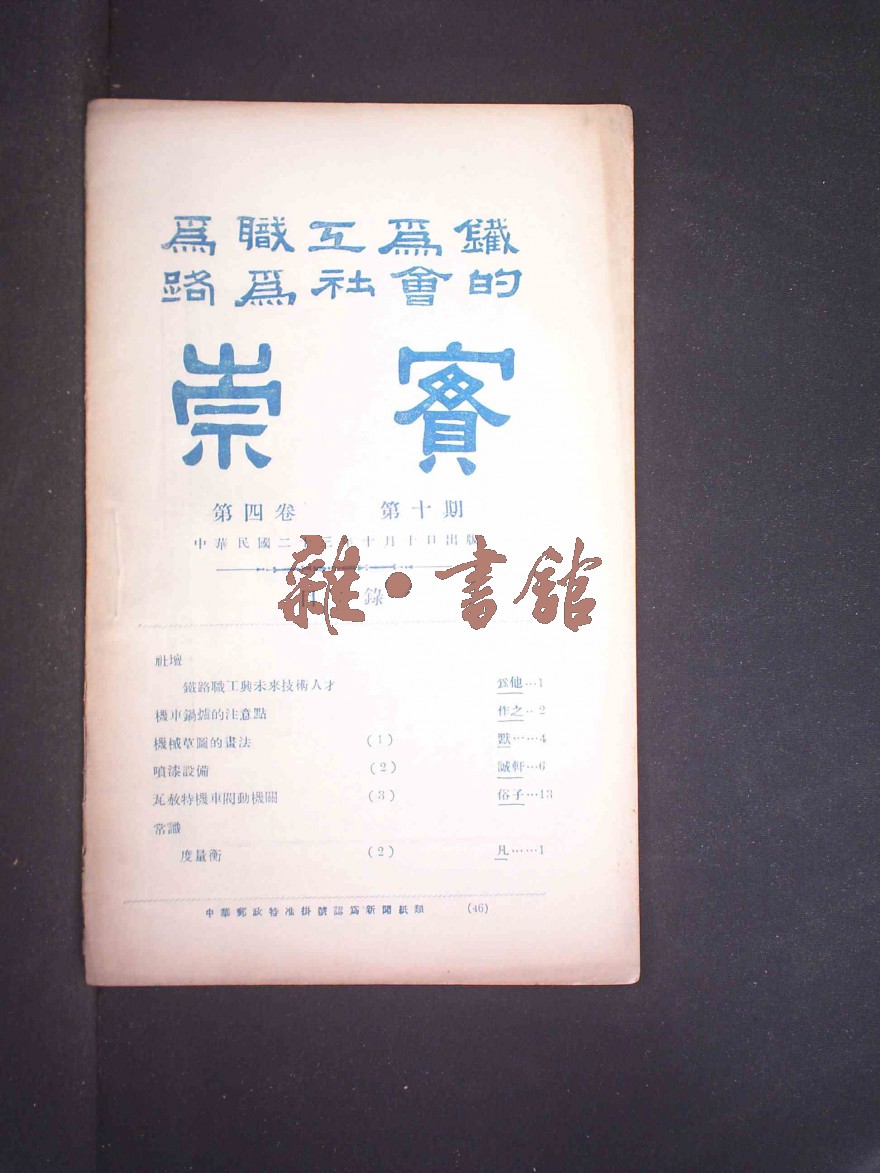 爲職工爲鐵
路爲社會的
崇實
第四卷 第十期
中華民國二十三年十月十日出版
雜·書館
目錄
社壇
鐵路職工與未來技術人才 爲他…1
機車鍋爐的注意點 作之…2
機械草圖的畫法 (1) 默……4
噴漆設備 (2) 誠軒…6
瓦赦特機車閥動機關 (3) 俗子…13
常識
度量衡 (2) 凡……1
中華郵政特准掛號認爲新聞紙類 (46)